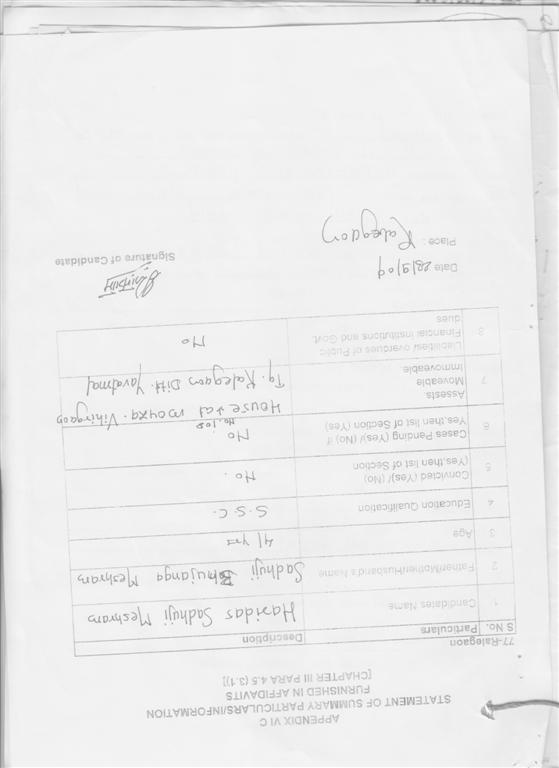 APPENDIX VI C
STATEMENT OF SUMMARY PARTICULARS/INFORMATION
FURNISHED IN AFFIDAVITS
[CHAPTER III PARA 4.5 (3.1)]
77-Ralegaon
S No. Particulars Description
1. Candidates Name Haridas Sadhuji Meshram
2 Father/Mother/Husband's Name Sadhuji Bhujanga Meshram
3 Age 41 yrs
4 Education Qualification S.S.C.
5 Convicted (Yes)/ (No) No.
(Yes,then list of Section
6 Cases Pending (Yes)/ (No) if No
Yes,then list of Section (Yes)
7 Assests House at mouza. Vihirgaon
No. 108
Moveable Tq. Ralegaon Dist. Yavatmal
Immoveable
8 Liabilities/ overdues of Public No
Financial Institutions and Govt.
dues
Date 28/9/09
Place : Ralegaon
Signature of Candidate